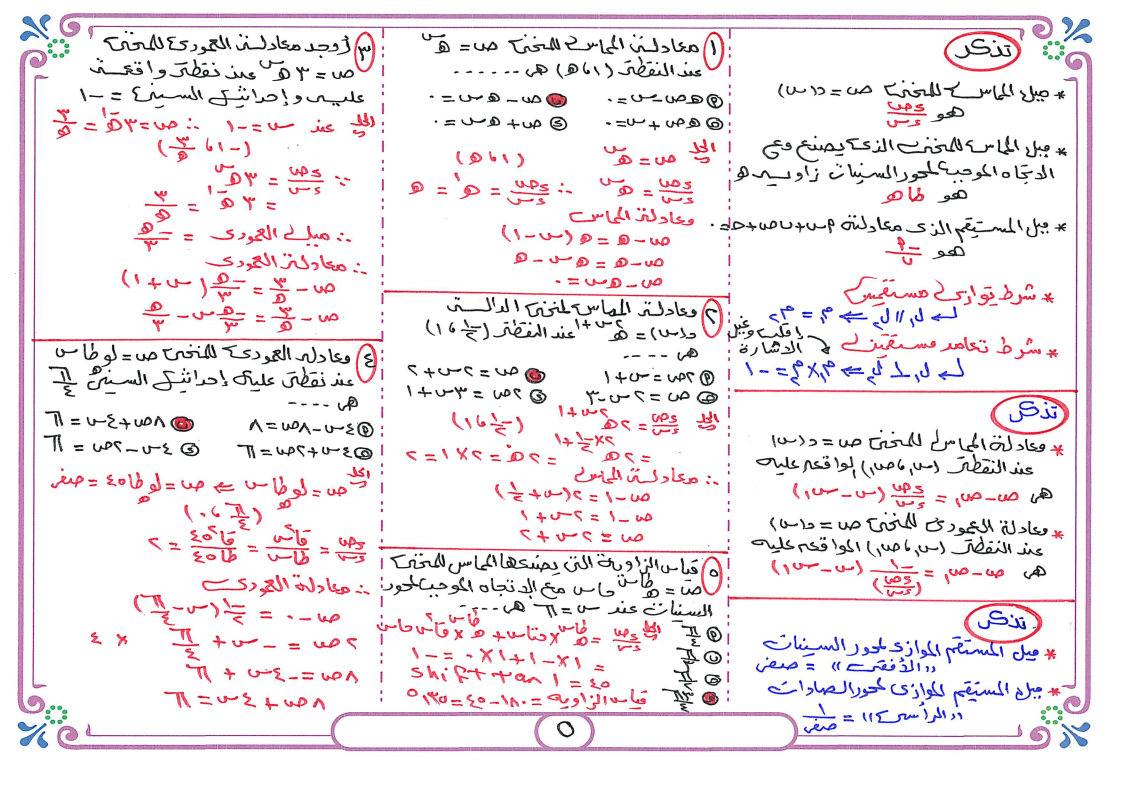 تذكر
* ميل المماس للمنحنى ص = د(س)
هو ءص/ءس
* ميل المماس للمنحنى الذى يصنع مع
الاتجاه الموجب لمحور السينات زاوية هـ
هو طا هـ
* ميل المستقيم الذى معادلة ٢س + ب ص + حـ = ٠
هو -٢/ب
* شرط توازى مستقيمين
ل١ // ل٢ ⇐ م١ = م٢
* شرط تعامد مستقيمين
إقلب وغير
الاشارة
ل١ ⊥ ل٢ ⇐ م١ × م٢ = -١
تذكر
* معادلة المماس للمنحنى ص = د(س)
عند النقطة (س١ ، ص١) الواقعه عليه
هى ص - ص١ = ءص/ءس (س - س١)
* معادلة العمودى للمنحنى ص = د(س)
عند النقطة (س١ ، ص١) الواقعه عليه
هى ص - ص١ = -١/(ءص/ءس) (س - س١)
تذكر
* ميل المستقيم الموازى لمحور السينات
"الأفقى" = صفر
* ميل المستقيم الموازى لمحور الصادات
"الرأسى" = ١/صفر
١ معادلة المماس للمنحنى ص = هـ^س
عند النقطة (١ ، هـ) هى ......
هـ ص - س = ٠
ص - هـ س = ٠
هـ ص + س = ٠
ص + هـ س = ٠
الحل
ص = هـ^س (١ ، هـ)
ءص/ءس = هـ^س ∴ ءص/ءس = هـ^١ = هـ
معادلة المماس
ص - هـ = هـ (س - ١)
ص - هـ = هـ س - هـ
ص - هـ س = ٠
٢ معادلة المماس لمنحنى الدالة
د(س) = هـ^(٢س+١) عند النقطة (-١/٢ ، ١)
هى ....
٢ص = س + ١
ص = ٢س + ٢
ص = ٢س - ٣
٢ص = ٣س + ١
الحل ءص/ءس = ٢هـ^(٢س+١) (-١/٢ ، ١)
= ٢هـ^(٢×-١/٢+١) = ٢هـ^٠ = ٢×١ = ٢
∴ معادلة المماس
ص - ١ = ٢(س + ١/٢)
ص - ١ = ٢س + ١
ص = ٢س + ٢
٥ قياس الزاوية التى يصنعها المماس للمنحنى
ص = هـ^طاس حاس مع الاتجاه الموجب لمحور
السينات عند س = π هى ....
الحل ءص/ءس = هـ^طاس × حتاس + هـ^طاس × قا²س حاس
= ١ × -١ + ١ × ٠ = -١
shift tan 1 = ٤٥
قياس الزاوية = ١٨٠ - ٤٥ = ١٣٥°
٣ أوجد معادلة العمودى للمنحنى
ص = ٣هـ^س عند نقطة واقعة
عليه وإحداثى السينى = -١
الحل عند س = -١ ∴ ص = ٣هـ^-١ = ٣/هـ
(-١ ، ٣/هـ)
∵ ءص/ءس = ٣هـ^س
= ٣هـ^-١ = ٣/هـ
∴ ميل العمودى = -هـ/٣
∴ معادلة العمودى
ص - ٣/هـ = -هـ/٣ (س + ١)
ص - ٣/هـ = -هـ/٣ س - هـ/٣
٤ معادلة العمودى للمنحنى ص = لو_هـ طاس
عند نقطة عليه إحداثى السينى π/٤
هى ....
٤س - ٨ص = π
٨ص + ٤س = π
٤س + ٢ص = π
٤س - ٢ص = π
الحل
ص = لو_هـ طاس ⇐ ص = لو_هـ طا٤٥ = صفر
(π/٤ ، ٠)
ءص/ءس = قا²س/طاس = قا²٤٥/طا٤٥ = ٢
∴ معادلة العمودى
ص - ٠ = -١/٢ (س - π/٤)
٢ص = -س + π/٤ × ٤
٨ص = -٤س + π
٨ص + ٤س = π
٥